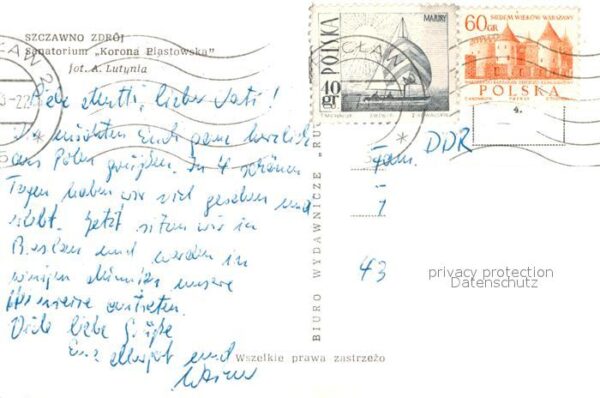 SZCZAWNO ZDRÓJ
Sanatorium „Korona Piastowska"
fot. A. Lutynia
Liebe Mutti, lieber Vati!
Wir möchten Euch ganz herzlich
aus Polen grüßen. In 4 schönen
Tagen haben wir viel gesehen und
erlebt. Jetzt sitzen wir in
Breslau und werden in
wenigen Minuten unsere
Heimreise antreten.
Viele liebe Grüße
Eure Margot und
Werner
BIURO WYDAWNICZE „RU
Wszelkie prawa zastrzeżo
POLSKA
MAZURY
40 gr
60 GR
SIEDEM WIEKÓW WARSZAWY
POLSKA
4.
WROCŁAW 2
Fam. DDR
1
43
privacy protection
Datenschutz